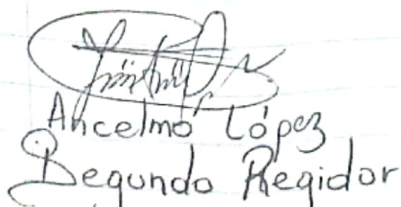 Ancelmo López
Segundo Regidor